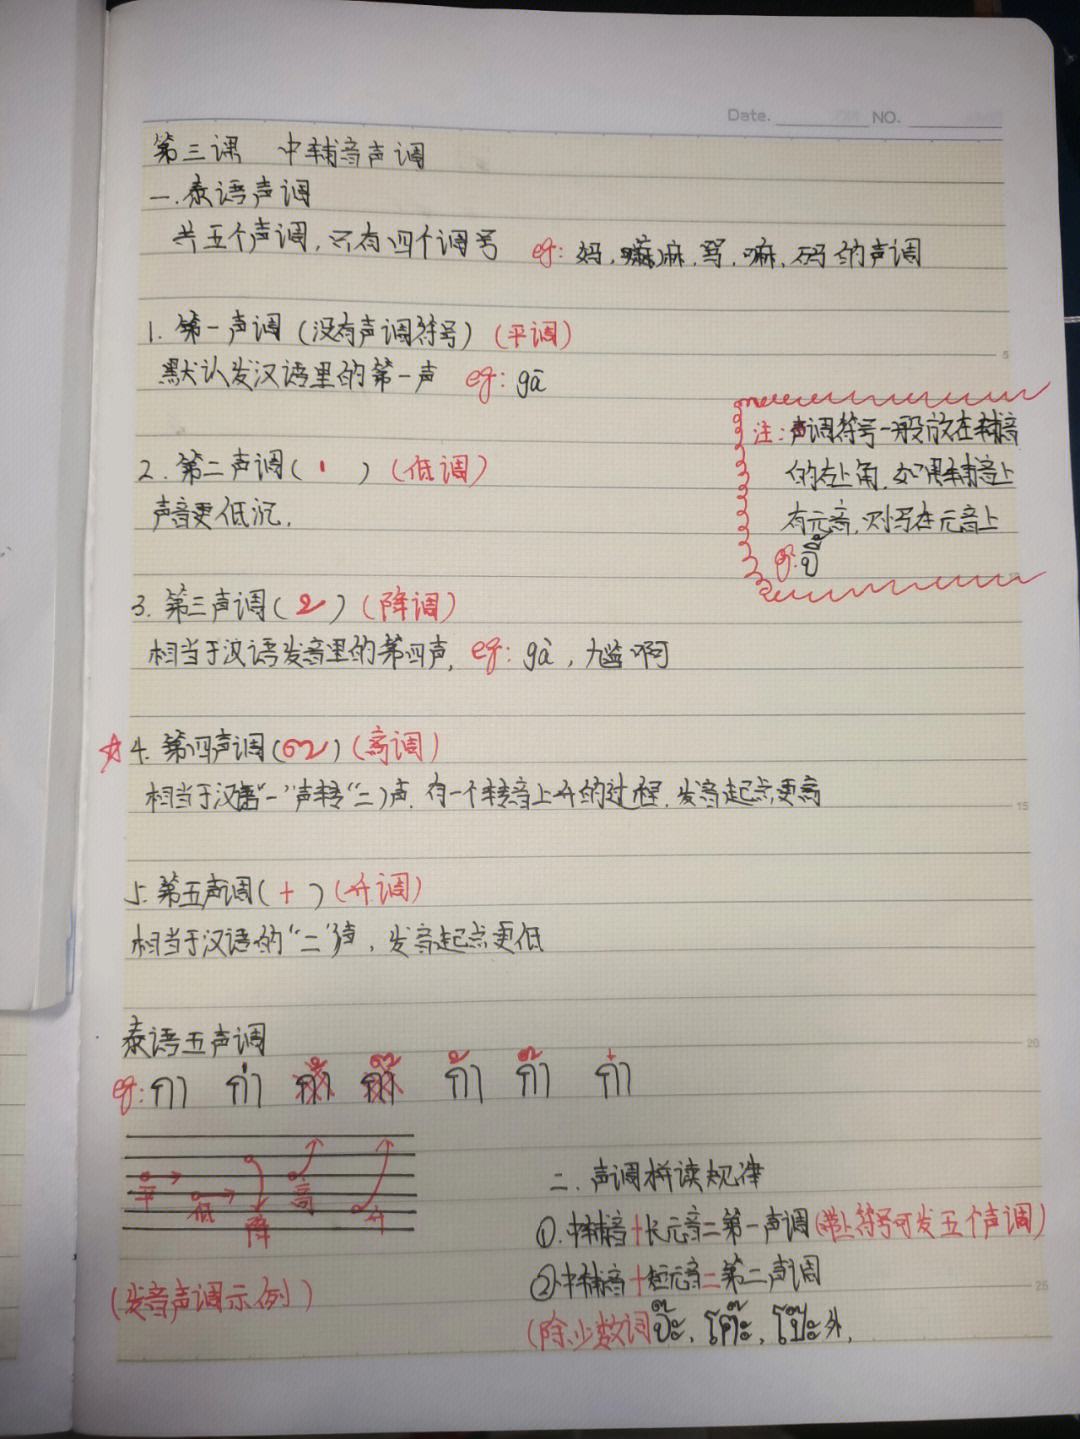 Date. NO.
第三课 中辅音声调
一.泰语声调
共五个声调,只有四个调号 eg: 妈、嘛麻、骂、嘛、码的声调
1. 第一声调(没有声调符号)(平调)
默认发汉语里的第一声 eg: gā
2. 第二声调( ่ )(低调)
声音更低沉.
注:声调符号一般放在辅音
的右上角,如果辅音上
有元音,则写在元音上
3. 第三声调( ้ )(降调)
相当于汉语发音里的第四声, eg: gà, 尴啊
☆4. 第四声调( ๊ )(高调)
相当于汉语"一"声转"二"声.有一个转音上升的过程,发音起点更高
5. 第五声调( ๋ )(升调)
相当于汉语的"二"声,发音起点更低
泰语五声调
eg: กา ก่า ก้า ก๊า ก๋า
平 低 降 高 升
(发音声调示例)
二. 声调拼读规律
①.中辅音+长元音=第一声调(带上符号可发五个声调)
②中辅音+短元音=第二声调
(除少数词 จ๊ะ, โต๊ะ, โป๊ะ外,
5
15
20
25